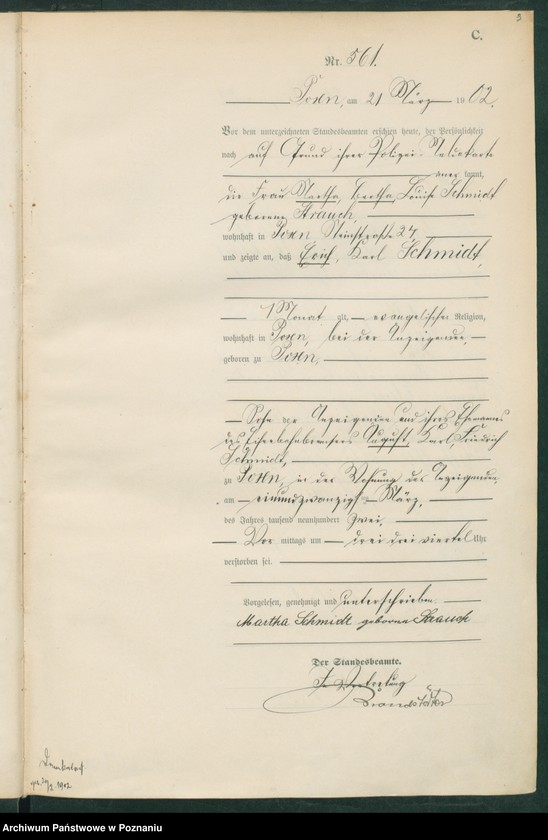 3
C.
Nr. 561.
Posen, am 21 März 1902.
Vor dem unterzeichneten Standesbeamten erschien heute, der Persönlichkeit
nach auf Grund ihrer Polizei-Meldekarte
anerkannt,
die Frau Martha, Bertha, Luise Schmidt
geborene Strauch,
wohnhaft in Posen 24,
und zeigte an, daß Erich, Karl Schmidt,
1 Monat alt, evangelischer Religion,
wohnhaft in Posen, bei der Anzeigenden,
geboren zu Posen,
Sohn der Anzeigenden und ihres Ehemannes
des August, Karl, Friedrich
Schmidt,
zu Posen, in der Wohnung der Anzeigenden,
am einundzwanzigsten März,
des Jahres tausend neunhundert zwei,
Vor mittags um drei drei viertel Uhr
verstorben sei.
Vorgelesen, genehmigt und unterschrieben
Martha Schmidt geborne Strauch
Der Standesbeamte.
In Vertretung
1902
Archiwum Państwowe w Poznaniu